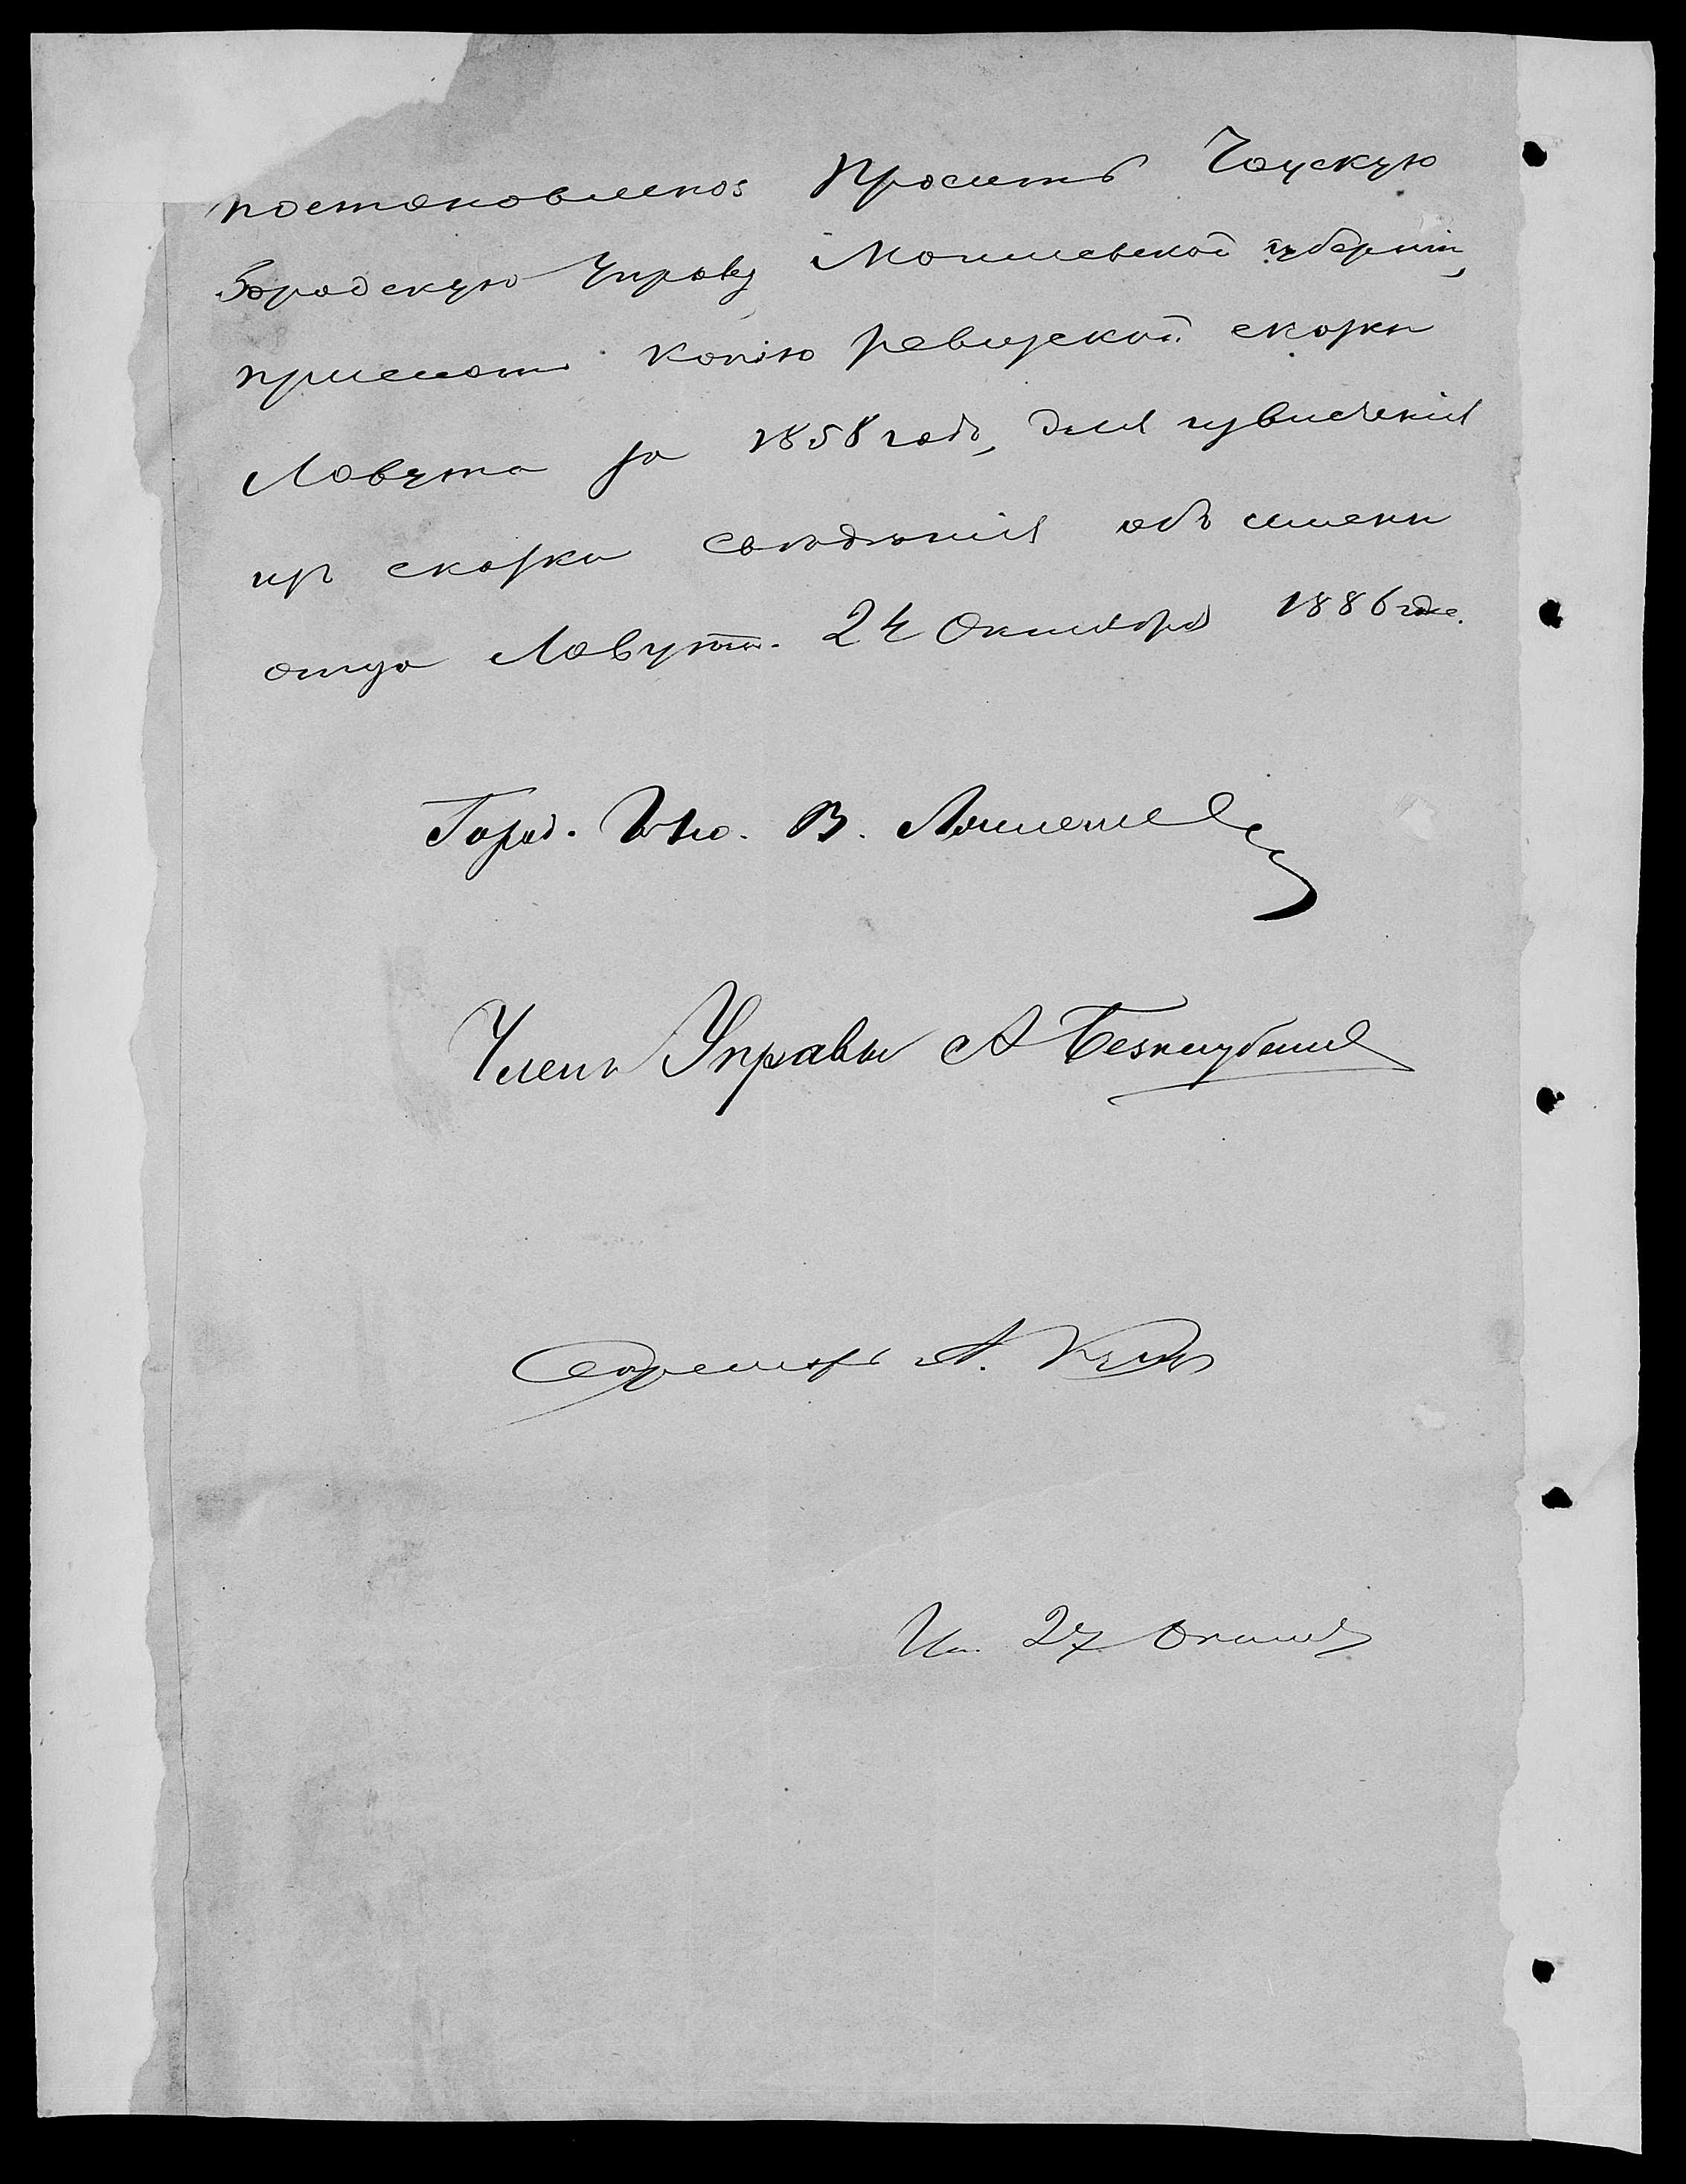 постановлено: просить Чаускую
Городскую Управу Могилевской губерніи,
прислать копію ревизской сказки
Лавута за 1858 годъ, для извлеченія
изъ сказки свѣдѣнія объ имени
отца Лавута. 24 Октября 1886 года.
Город. В.
Членъ Управы А Безкишубенко
Секретарь А.
Исп. 27 Октября